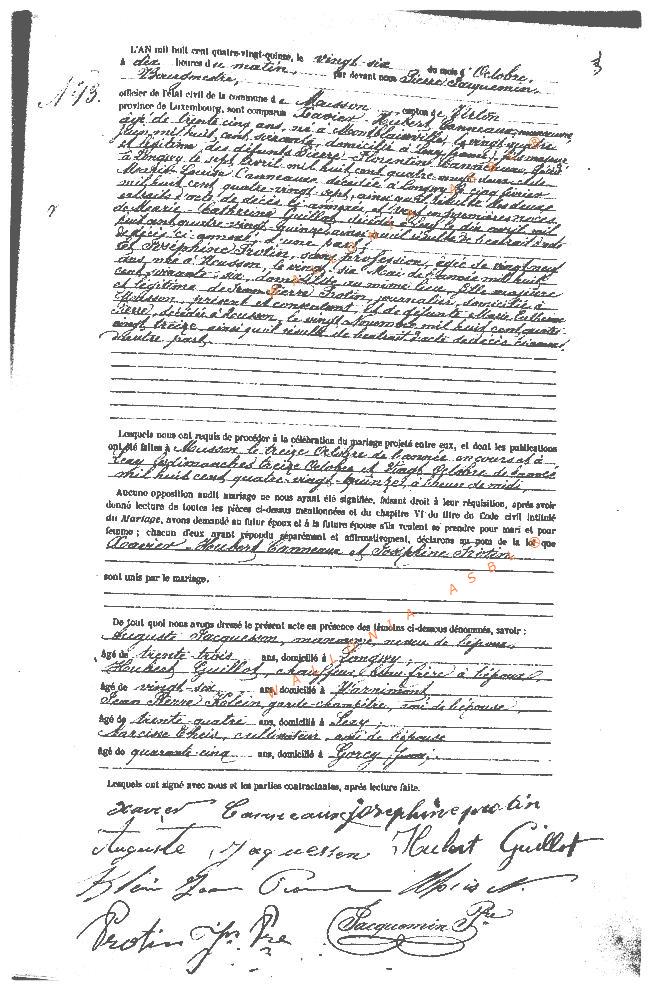 L'AN mil huit cent quatre-vingt-quinze, le vingt-six du mois d'Octobre,
à dix heures du matin, par devant nous Pierre Jacquemin,
Bourgmestre,
N° 13.
officier de l'état civil de la commune de Musson canton de Virton
province de Luxembourg, sont comparus Xavier Hubert Canneaux, manoeuvre,
âgé de trente cinq ans, né à le vingt quatre
Juin mil huit cent soixante, domicilié à majeur
et légitime des défunts Pierre Florentin Canneaux, décédé
à Longwy le sept Avril mil huit cent quatre vingt deux et de
Marie Louise Canneaux, décédée à Longwy le cinq février
mil huit cent quatre-vingt sept, ainsi qu'il résulte des deux
extraits d'acte de décès ci-annexés et veuf en premières noces
de Marie Catherine Guillot décédée à le dix avril mil
huit cent quatre-vingt quinze ainsi qu'il résulte de l'extrait d'acte
de décès ci-annexé, d'une part,
Et Joséphine Protin, sans profession, âgée de vingt neuf
ans, née à Musson, le vingt six Mai de l'année mil huit
cent soixante six domiciliée au même lieu, fille majeure
et légitime de Jean Pierre Protin, journalier, domicilié à
Musson, présent et consentant, et de défunte Marie Catherine
Pierre, décédée à Musson, le vingt novembre mil huit cent quatre
vingt treize ainsi qu'il résulte de l'extrait d'acte de décès ci-annexé,
d'autre part.
Lesquels nous ont requis de procéder à la célébration du mariage projeté entre eux, et dont les publications
ont été faites à Musson le treize Octobre de l'année en cours et à
les dimanches treize Octobre et vingt Octobre de l'année
mil huit cent quatre-vingt-quinze, à l'heure de midi,
Aucune opposition audit mariage ne nous ayant été signifiée, faisant droit à leur réquisition, après avoir
donné lecture de toutes les pièces ci-dessus mentionnées et du chapitre VI du titre du Code civil intitulé
du Mariage, avons demandé au futur époux et à la future épouse s'ils veulent se prendre pour mari et pour
femme ; chacun d'eux ayant répondu séparément et affirmativement, déclarons au nom de la loi que
Xavier Hubert Canneaux et Joséphine Protin
sont unis par le mariage.
De tout quoi nous avons dressé le présent acte en présence des témoins ci-dessous dénommés, savoir :
Auguste Jacquesson, manoeuvre, neveu de l'époux,
âgé de vingt trois ans, domicilié à Longwy,
Hubert Guillot, chauffeur, beau frère à l'époux,
âgé de vingt-six ans, domicilié à Warnimont,
Jean Pierre Klein garde-champêtre, ami de l'épouse,
âgé de trente quatre ans, domicilié à
Narcisse Theis, cultivateur, ami de l'épouse
âgé de quarante cinq ans, domicilié à Gorcy
Lesquels ont signé avec nous et les parties contractantes, après lecture faite.
xavier Canneaux josephine protin
Auguste Jaquesson Hubert Guillot
Klein Jean
Protin Jn Pre Jacquemin Pre
WALLONIA ASBL